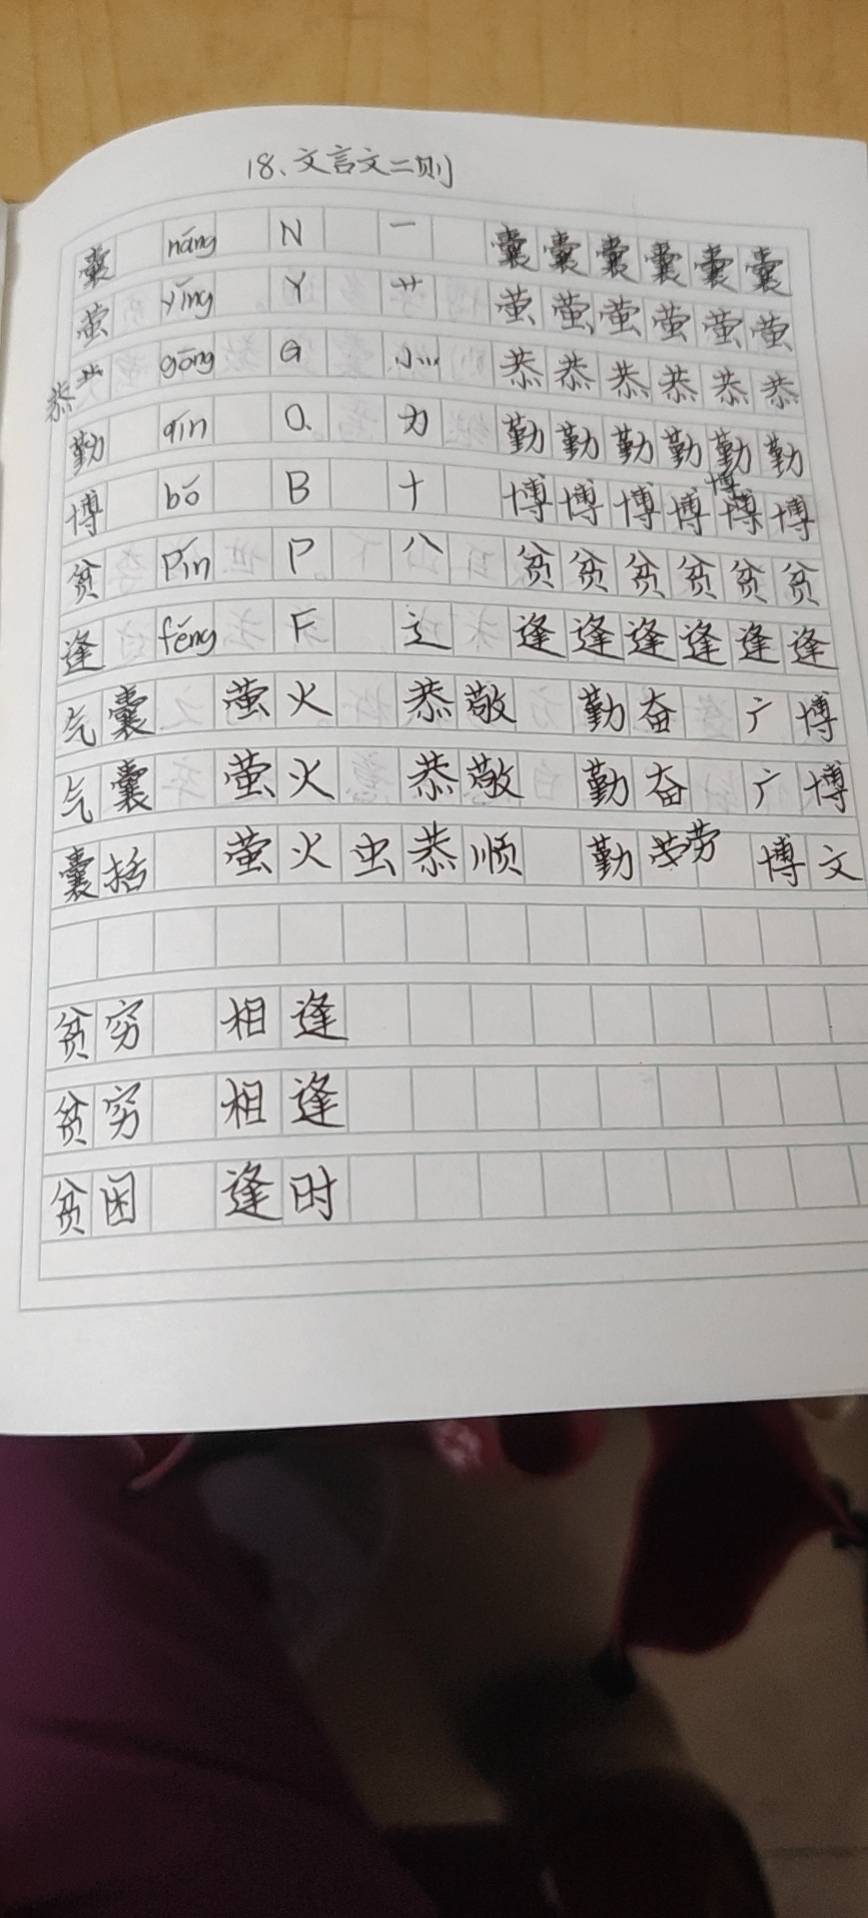 18、文言文二则
囊 náng N 一 囊囊囊囊囊囊
萤 yíng Y 艹 萤萤萤萤萤萤
恭 gōng G 㣺 恭恭恭恭恭恭
勤 qín Q 力 勤勤勤勤勤勤
博 bó B 十 博博博博博博
贫 Pín P 八 贫贫贫贫贫贫
逢 féng F 辶 逢逢逢逢逢逢
气囊 萤火 恭敬 勤奋 广博
气囊 萤火 恭敬 勤奋 广博
囊括 萤火虫 恭顺 勤劳 博文
贫穷 相逢
贫穷 相逢
贫困 逢时